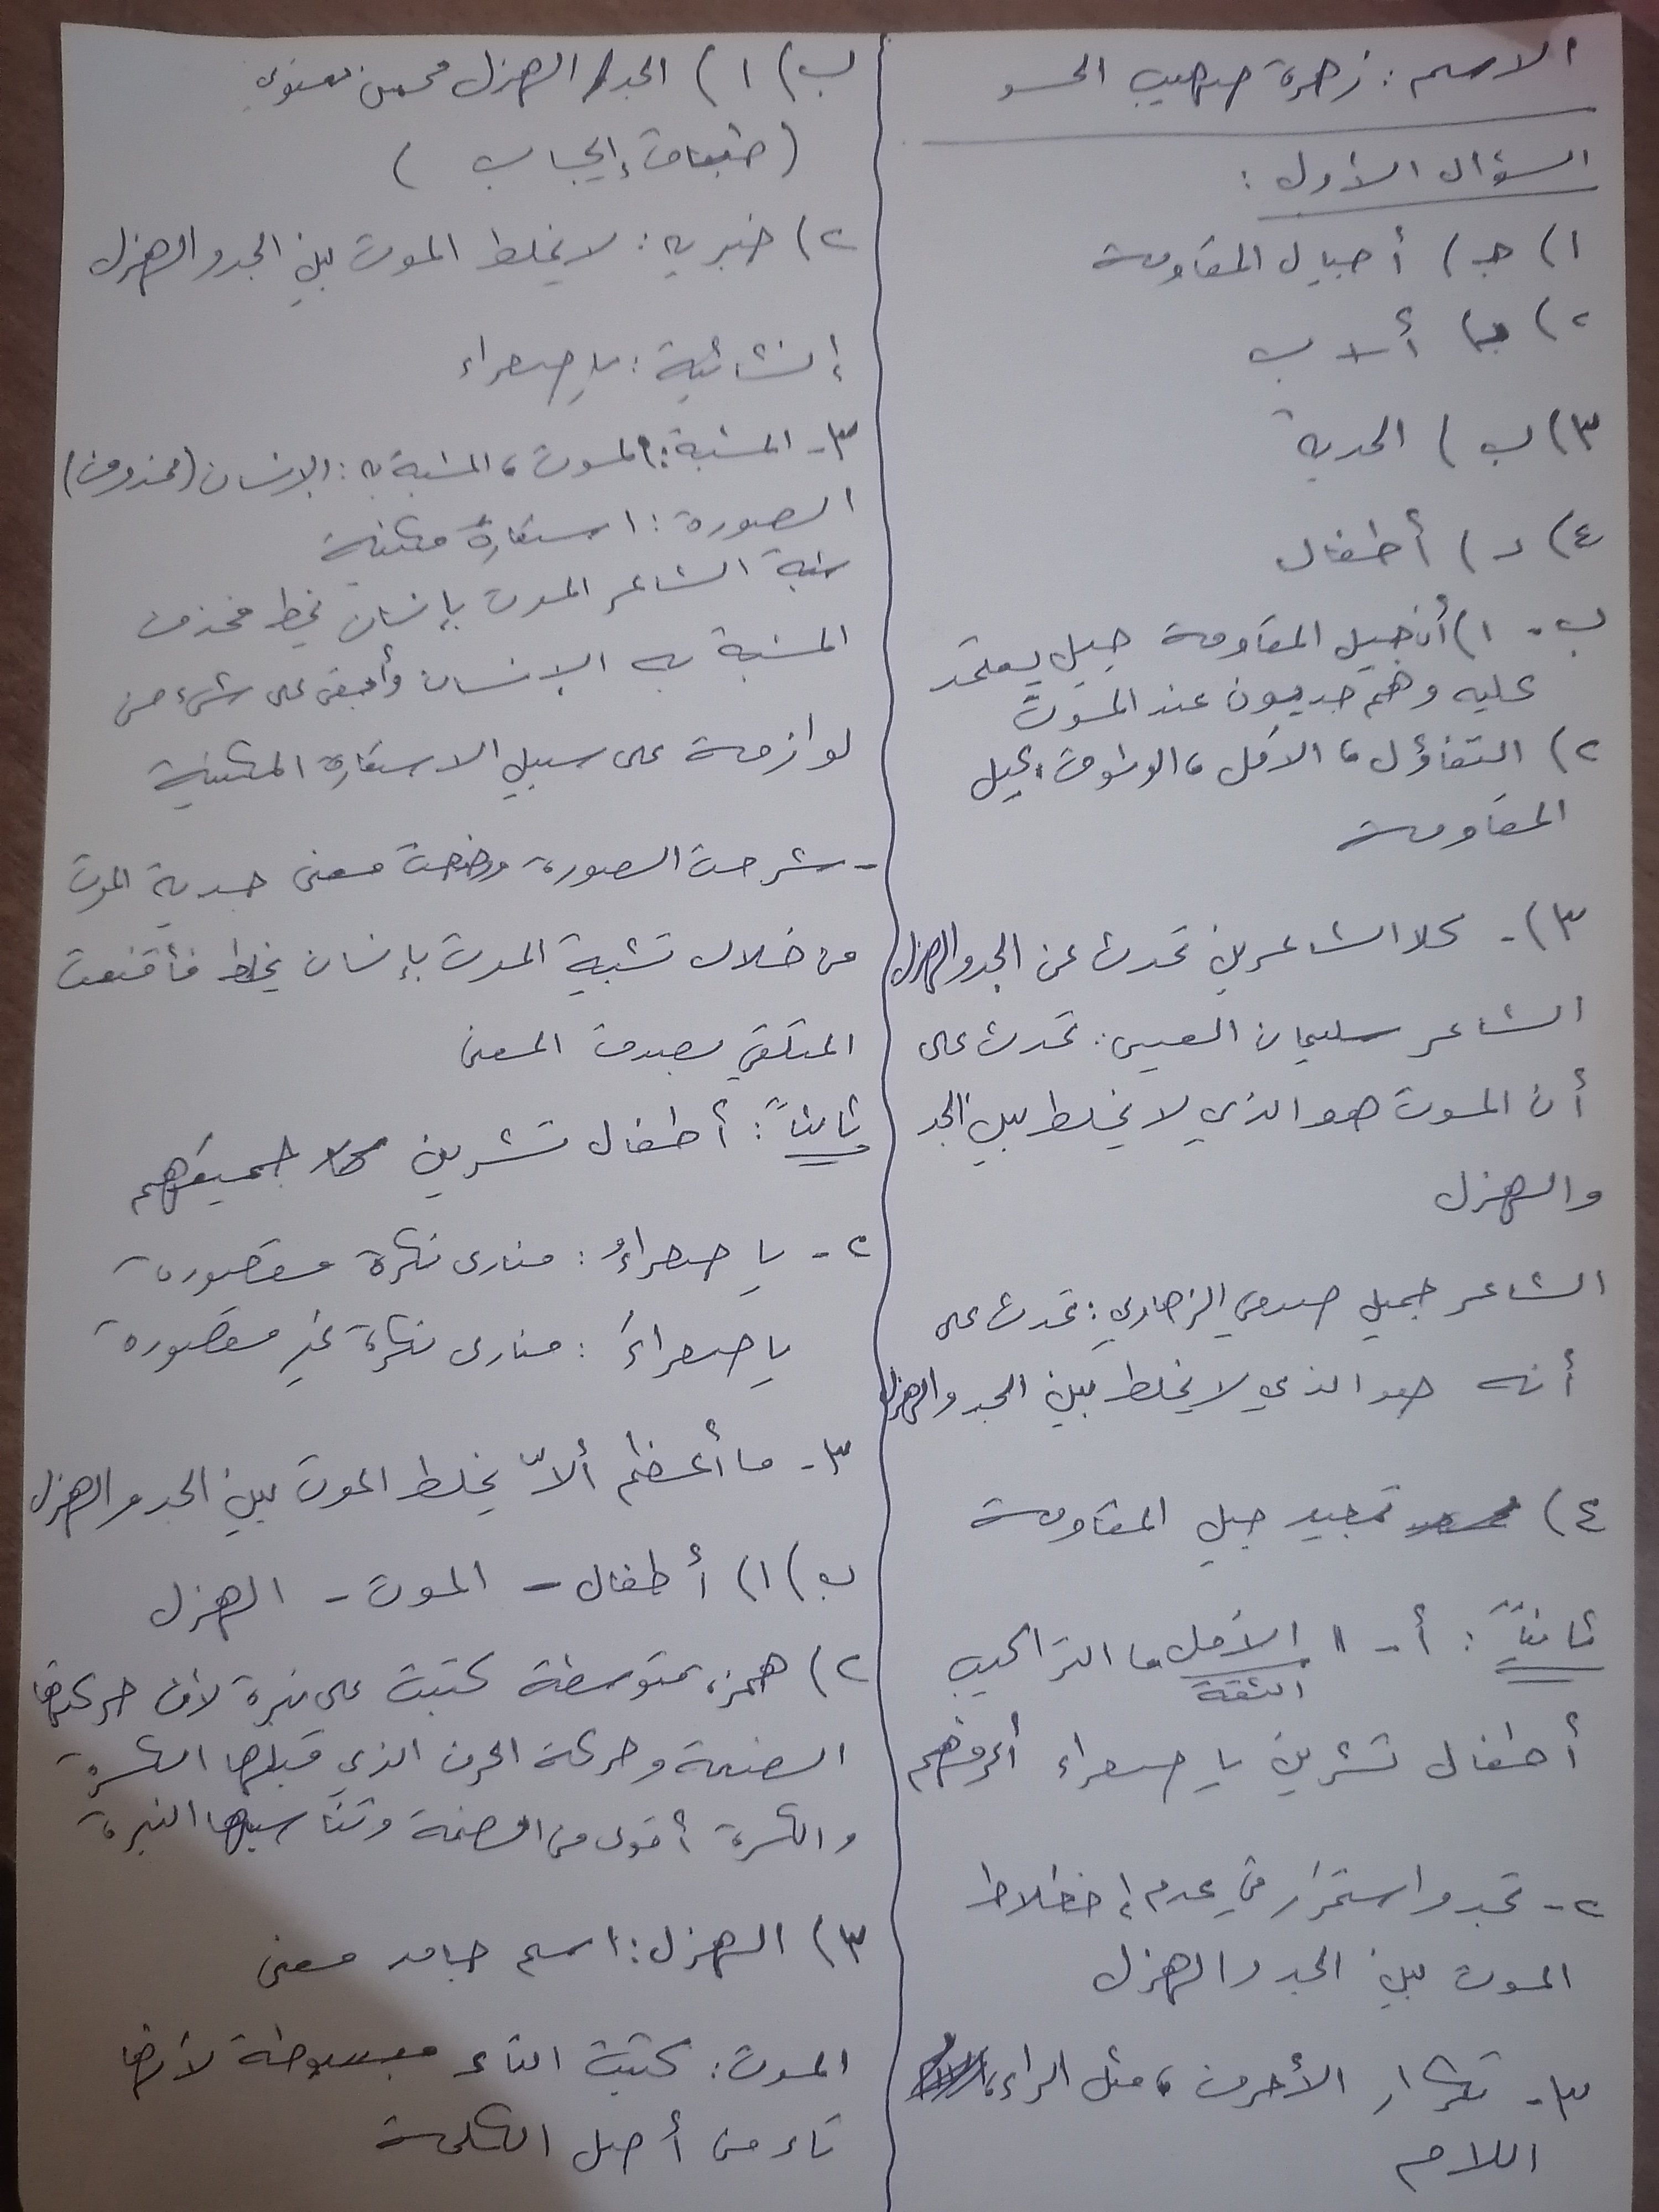 الاسم : زهرة صهيب الحسو
السؤال الأول :
١) جـ) أجيال المقاومة
٢) أ + ب
٣) ب) الجدية
٤) د) أطفال
ب - ١) أن جيل المقاومة جيل يعتمد
عليه وهم جديون عند الموت
٢) التفاؤل ، الأمل ، الوثوق بجيل
المقاومة
٣) - كلا الشاعرين تحدث عن الجد والهزل
الشاعر سليمان العيسى : تحدث على
أن الموت هو الذي لا يخلط بين الجد
والهزل
الشاعر جميل صدقي الزهاوي : تحدث على
أنه هو الذي لا يخلط بين الجد والهزل
٤) تمجيد جيل المقاومة
ثانياً : أ - ١ الأمل ، التراكيب
الثقة
أطفال تشرين يا صحراء أعرفهم
٢ - تجدد واستمرار في عدم إختلاط
الموت بين الجد والهزل
٣ - تكرار الأحرف ، مثل الراء ،
اللام
ب) ١) الجد / الهزل محسن معنوي
(طباق إيجاب)
٢) خبرية : لا يخلط الموت بين الجد والهزل
إنشائية : يا صحراء
٣ - المشبة : الموت ، المشبة به : الإنسان (محذوف)
الصورة : استعارة مكنية
شبة الشاعر الموت بإنسان يخلط فحذف
المشبة به الإنسان وأبقى على شيء من
لوازمة على سبيل الاستعارة المكنية
- شرحت الصورة وضحت معنى جدية الموت
من خلال تشبية الموت بإنسان يخلط فأقنعت
المتلقي بصدق المعنى
ثالثاً : أطفال تشرين جميعهم
٢ - يا صحراءُ : منادى نكرة مقصورة
يا صحراءَ : منادى نكرة غير مقصورة
٣ - ما أعظم ألاّ يخلط الموت بين الجد والهزل
ب) ١) أطفال - الموت - الهزل
٢) همزة متوسطة كتبت على نبرة لأن حركتها
الضمة وحركة الحرف الذي قبلها الكسرة
والكسرة أقوى من الضمة وتناسبها النبرة
٣) الهزل : اسم جامد معنى
الموت : كتبت التاء مبسوطة لأنها
تاء من أصل الكلمة